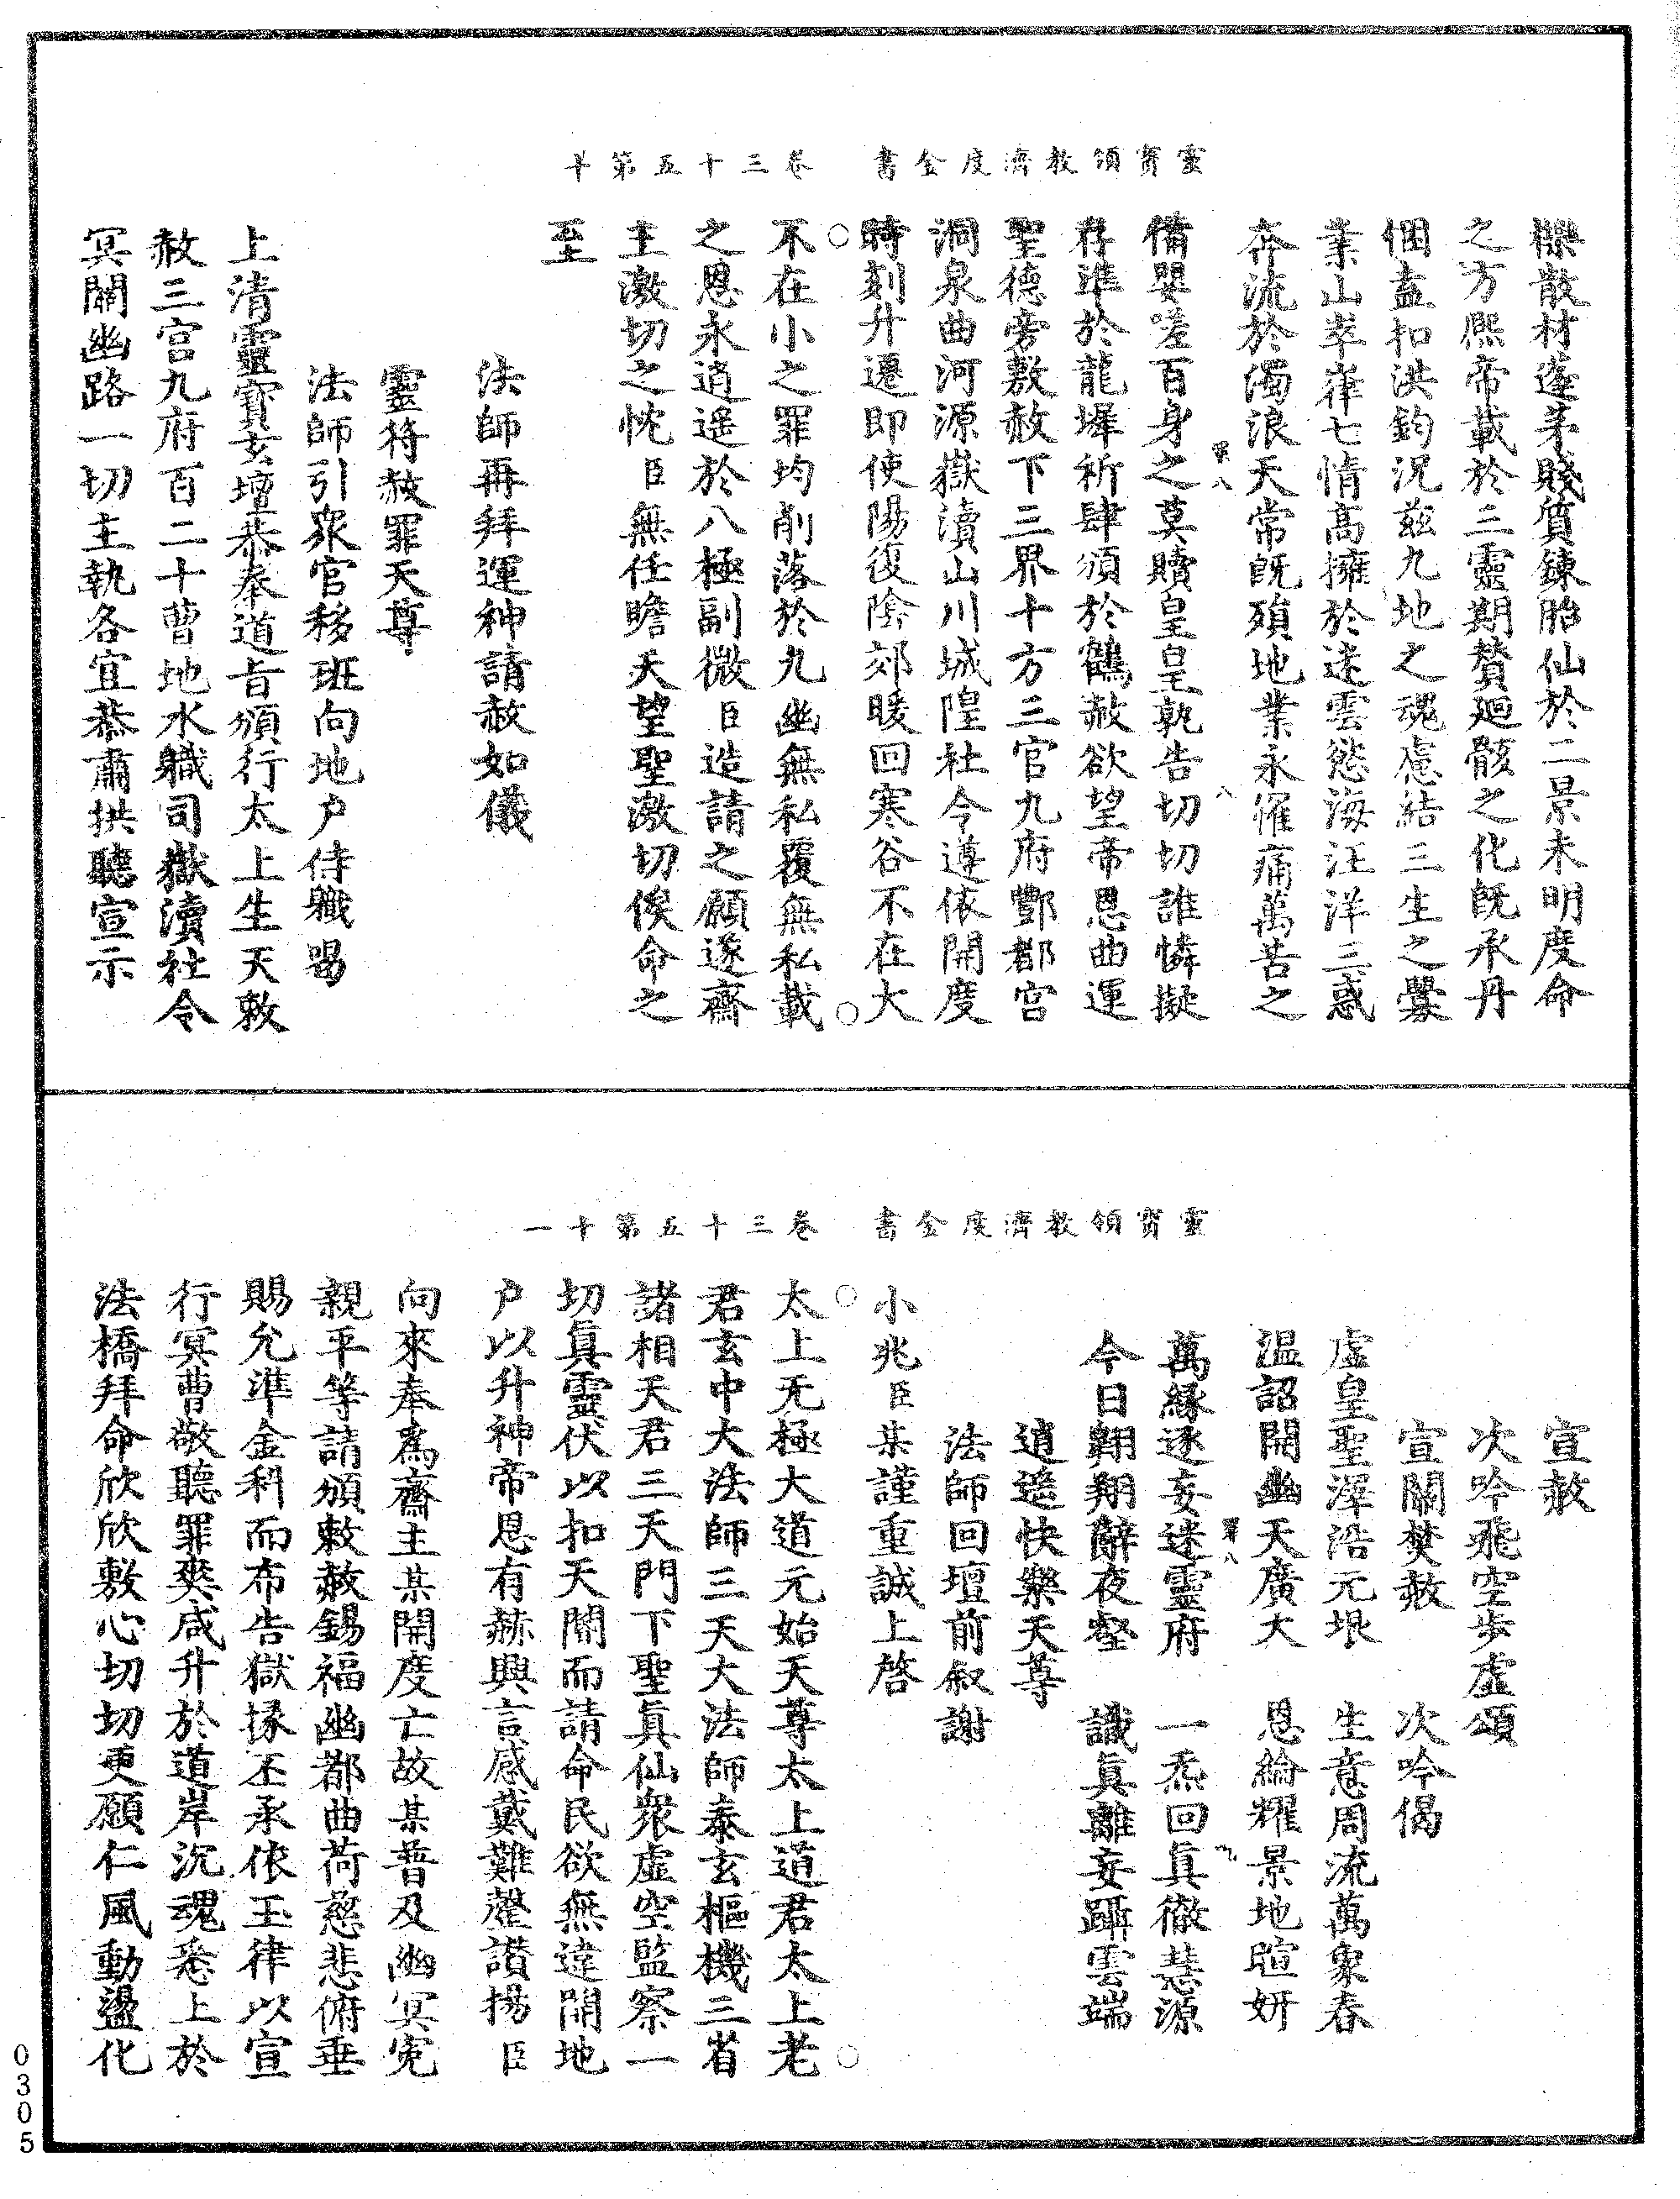 靈寶領教濟度金書　卷三十五第十
櫟散材蓬茅賤質鍊胎仙於二景未明度命
之方熙帝載於三靈期贊廻骸之化旣承丹
悃盍扣洪鈞況兹九地之魂慮結三生之釁
業山崒嵂七情高擁於迷雲慾海汪洋三惑
奔流於濁浪天常旣殞地業永罹痛萬苦之
備嬰嗟百身之莫贖皇皇孰告切切誰憐擬
存準於龍墀祈肆頒於鶴赦欲望帝恩曲運
聖德旁敷赦下三界十方三官九府酆都宮
洞泉曲河源嶽瀆山川城隍社令遵依開度
時刻升遷即使陽復陰郊暖回寒谷不在大
○不在小之罪均削落於九幽無私覆無私載○
之恩永逍遥於八極副微臣造請之願遂齋
主激切之忱臣無任瞻天望聖激切俟命之
至
法師再拜運神請赦如儀
靈符赦罪天尊
法師引衆官移班向地户侍職唱
上清靈寶玄壇恭奉道旨頒行太上生天敕
赦三官九府百二十曹地水職司嶽瀆社令
冥關幽路一切主執各宜恭肅拱聽宣示
靈寶領教濟度金書　卷三十五第十一
宣赦
次吟飛空步虚頌
宣關焚赦　次吟偈
虚皇聖澤浩元垠　生意周流萬象春
溫詔開幽天廣大　恩綸耀景地暄妍
萬縁逐妄迷靈府　一炁回眞徹慧源
今日翱翔辭夜壑　識眞離妄躡雲端
逍遥快樂天尊
法師回壇前叙謝
小兆臣某謹重誠上啓
○太上无極大道元始天尊太上道君太上老○
君玄中大法師三天大法師泰玄樞機三省
諸相天君三天門下聖眞仙衆虚空監察一
切眞靈伏以扣天關而請命民欲無違開地
户以升神帝恩有赫興言感戴難罄讚揚臣
向來奉爲齋主某開度亡故某普及幽冥寃
親平等請頒敕赦錫福幽都曲荷慈悲俯垂
賜允準金科而布告獄掾丕承依玉律以宣
行冥曹敬聽罪爽咸升於道岸沉魂悉上於
法橋拜命欣欣敷心切切更願仁風動盪化
0305